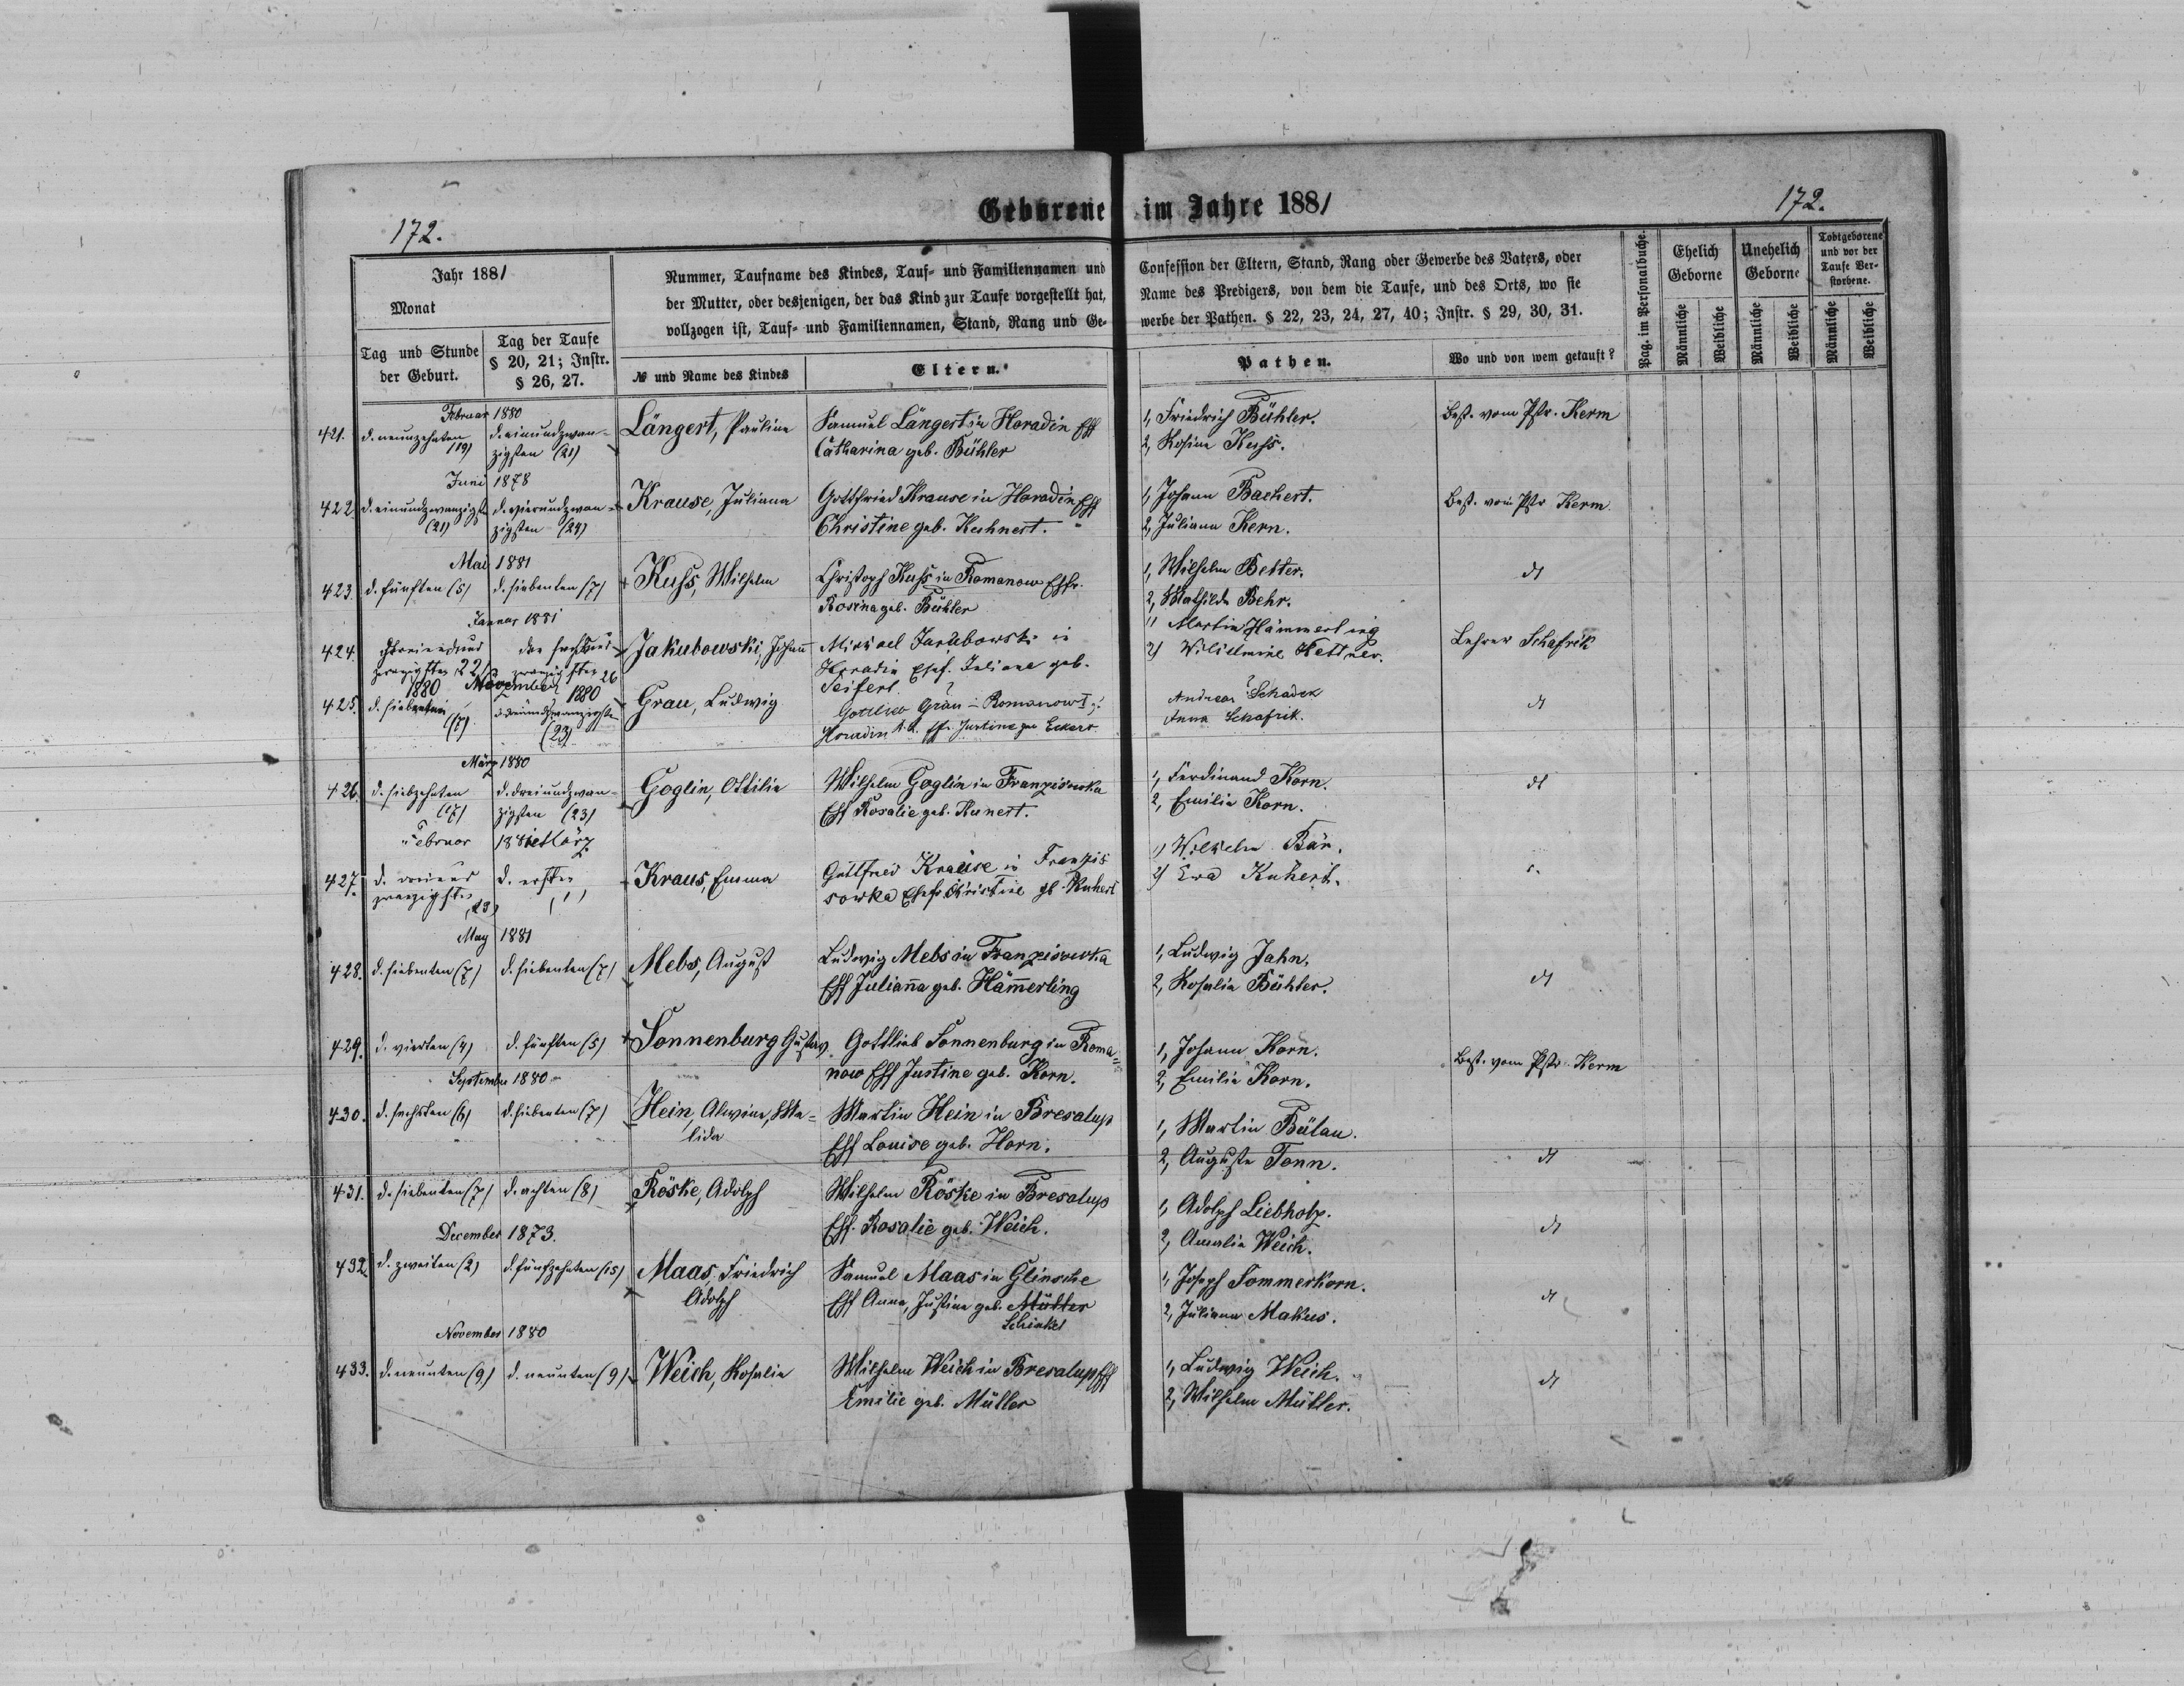 172.
Geborene im Jahre 1881
172.
Jahr 1881
Monat
Tag und Stunde der Geburt.
Tag der Taufe § 20, 21; Instr. § 26, 27.
Nummer, Taufname des Kindes, Tauf- und Familiennamen und
der Mutter, oder desjenigen, der das Kind zur Taufe vorgestellt hat,
vollzogen ist, Tauf- und Familiennamen, Stand, Rang und Ge-
№ und Name des Kindes
Eltern.
Confession der Eltern, Stand, Rang oder Gewerbe des Vaters, oder
Name des Predigers, von dem die Taufe, und des Orts, wo sie
werbe der Pathen. § 22, 23, 24, 27, 40; Instr. § 29, 30, 31.
Pathen.
Wo und von wem getauft?
Pag. im Personalbuche.
Ehelich Geborne
Unehelich Geborne
Todtgeborene und vor der Taufe Verstorbene.
Männliche
Weibliche
Männliche
Weibliche
Männliche
Weibliche
Februar 1880
421. d. neunzehnten (19) d. einundzwan- Längert, Pauline Samuel Längert in Horadin Ehf 1, Friedrich Bühler. Best. vom Pstr. Kerm
zigsten (21) Catharina geb. Bühler 2, Rosine Kuss.
Juni 1878
422. d. einundzwanzigst. (21) d. vierundzwan- Krause, Juliana Gottfried Krause in Horadin Ehf 1, Johann Bachert. Best. vom Pstr Kerm
zigsten (24) Christine geb. Kuhnert. 2, Juliana Kern.
Mai 1881
423. d. fünften (5) d. siebenten (7) Kuss, Wilhelm Christoph Kuss in Romanow Ehfr. 1, Wilhelm Better. dt
Rosina geb. Bühler 2, Mathilde Behr.
Januar 1881
424. Jakubowski, Johann Michael Jakubowski in 1) Martin Hämmerling Lehrer Schafrik
zwanzigsten 22 zwanzigsten 26 Horadin Ehef. Juliane geb. 2) Wilhelmine Kettner.
Seifert.
1880 November 1880
425. d. siebenten (7) dreiundzwanzigsten (23) Grau, Ludwig Gottlieb Grau in Romanow I Andreas Schadek dt
Horadin Justine geb Eckert Anna Schafrik.
März 1880
426. d. siebzehnten (17) d. dreiundzwan- Goglin, Ottilie Wilhelm Goglin in Franzisowka 1, Ferdinand Korn. dt
zigsten (23) Ehf Rosalie geb. Kunert. 2, Emilie Korn.
Februar 1881 März
427. zwanzigsten (23) d. ersten (1) Kraus, Emma Gottfried Krause in Franzis 1) Wilhelm Bär.
sowka Ehefr Christine gb Kuhert 2) Ewa Kuhert.
May 1881
428. d. siebenten (7) d. siebenten (7) Mebs, August Ludwig Mebs in Franzisowka 1, Ludwig Jahn. dt
Ehf Julian̄a geb. Häm̄erling 2, Rosalie Bühler.
429. d. vierten (4) d. fünften (5) Sonnenburg Gustav. Gottlieb Sonnenburg in Roma- 1, Johann Korn. Best. vom Pstr. Kerm
now Ehf Justine geb. Korn. 2, Emilie Korn.
September 1880
430. d. sechsten (6) d. siebenten (7) Hein, Alwine, Ma- Martin Hein in Bresalup 1, Martin Bülau. dt
lida Ehf Louise geb. Horn. 2, Auguste Tonn.
431. d. siebenten (7) d. achten (8) Röske, Adolph Wilhelm Röske in Bresalup 1, Adolph Liebholz. dt
Ehf. Rosalie geb. Weich. 2, Amalie Weich.
December 1873.
432. d. zweiten (2) d. fünfzehnten (15) Maas, Friedrich Samuel Maas in Glinsche 1, Joseph Sommerkorn. dt
Adolph Ehf Anna, Justine geb. Müller 2, Juliana Makus.
Schinkel
November 1880
433. d. neunten (9) d. neunten (9) Weich, Rosalie Wilhelm Weich in Bresalup Ehf 1, Ludwig Weich. dt
Emilie geb. Müller 2, Wilhelm Müller.